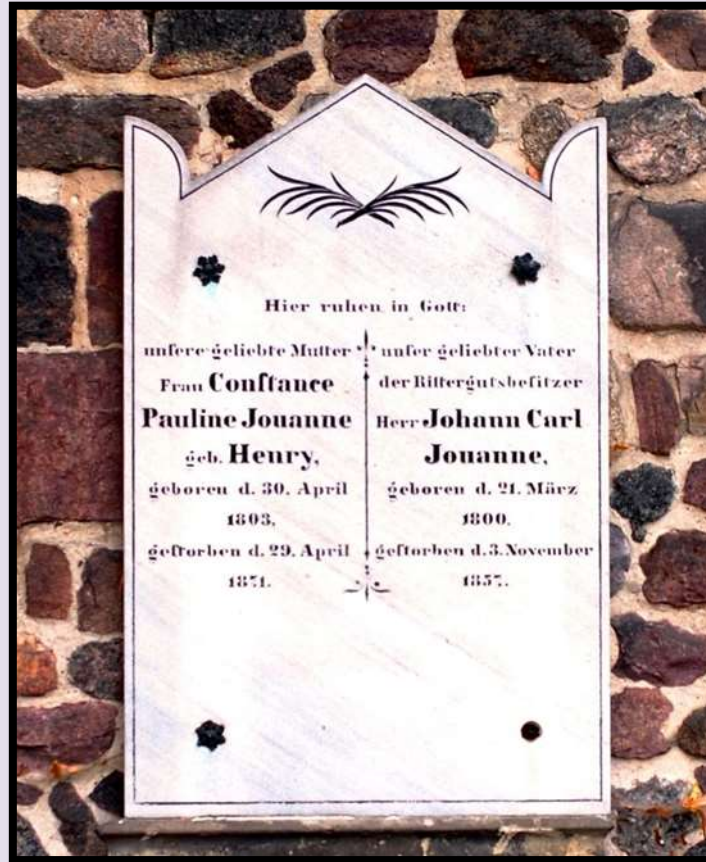 Hier ruhen in Gott:
unſere geliebte Mutter
Frau Conſtance
Pauline Jouanne
geb. Henry,
geboren d. 30. April
1803,
geſtorben d. 29. April
1871.
unſer geliebter Vater
der Rittergutsbeſitzer
Herr Johann Carl
Jouanne,
geboren d. 21. März
1800,
geſtorben d. 3. November
1857.